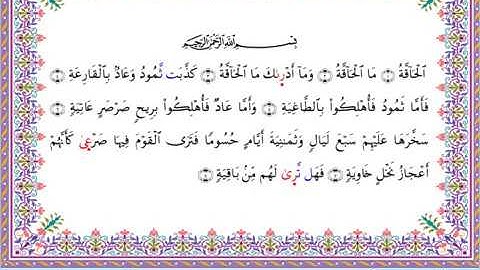 بِسْمِ اللَّهِ الرَّحْمَٰنِ الرَّحِيمِ
الْحَاقَّةُ ۝ مَا الْحَاقَّةُ ۝ وَمَآ أَدْرَىٰكَ مَا الْحَاقَّةُ ۝ كَذَّبَتْ ثَمُودُ وَعَادٌۢ بِالْقَارِعَةِ ۝
فَأَمَّا ثَمُودُ فَأُهْلِكُوا۟ بِالطَّاغِيَةِ ۝ وَأَمَّا عَادٌ فَأُهْلِكُوا۟ بِرِيحٍ صَرْصَرٍ عَاتِيَةٍ ۝
سَخَّرَهَا عَلَيْهِمْ سَبْعَ لَيَالٍ وَثَمَٰنِيَةَ أَيَّامٍ حُسُومًا فَتَرَى الْقَوْمَ فِيهَا صَرْعَىٰ كَأَنَّهُمْ
أَعْجَازُ نَخْلٍ خَاوِيَةٍ ۝ فَهَلْ تَرَىٰ لَهُم مِّنۢ بَاقِيَةٍ ۝